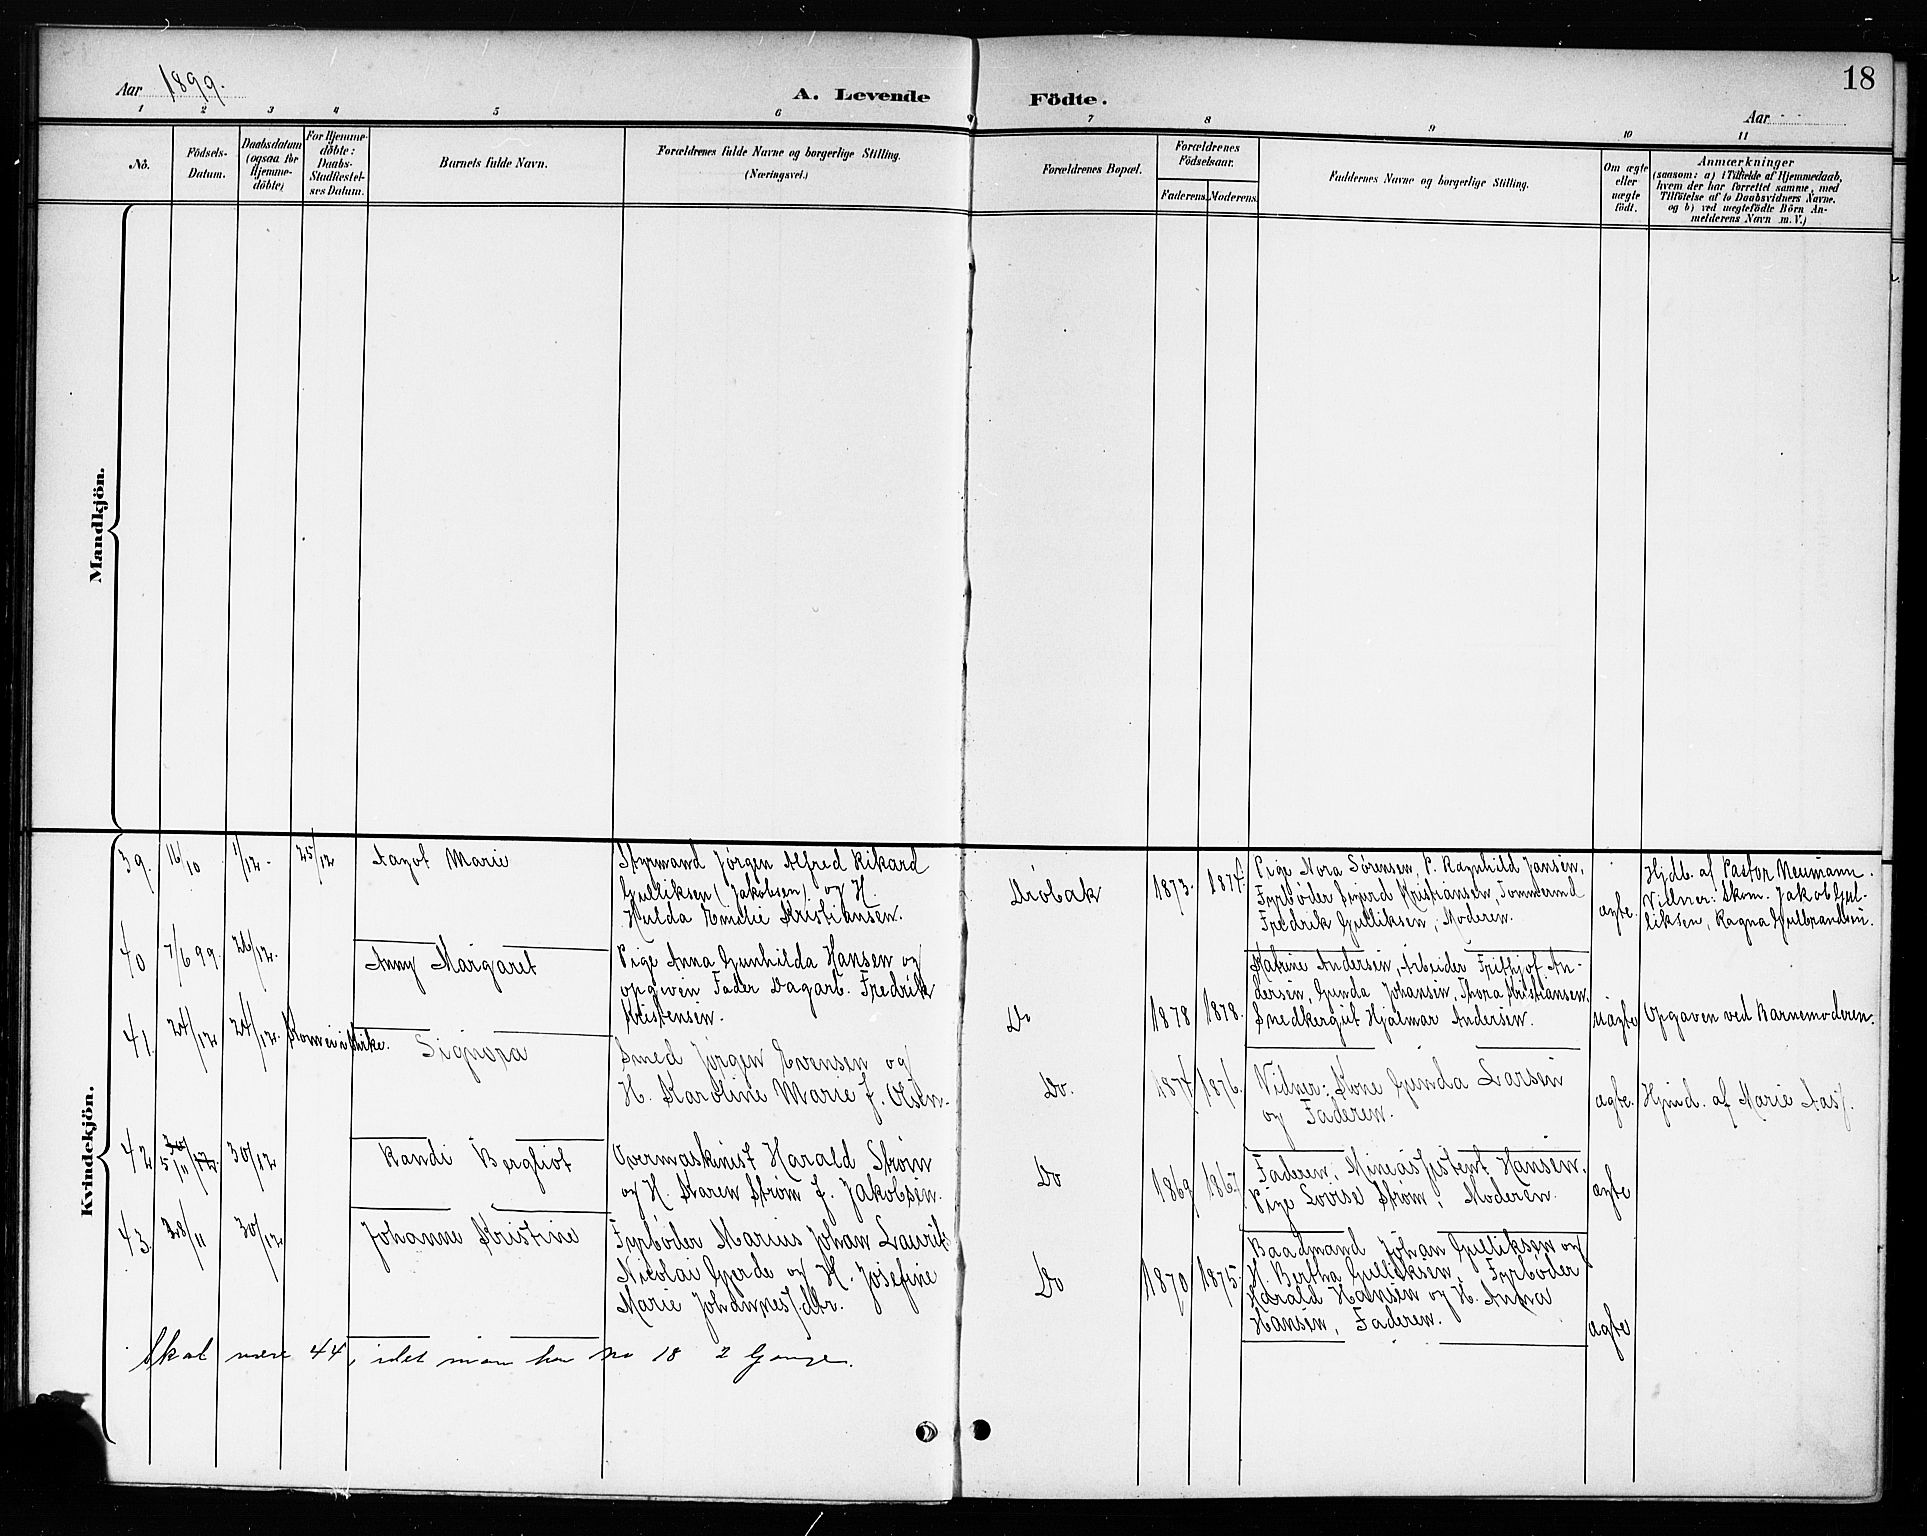 Aar 1899.
A. Levende Födte.
18
Aar
1 2 3 4 5 6 7 8 9 10 11
Nò.
Födsels-
Datum.
Daabsdatum
(ogsaa for
Hjemme-
döbte)
For Hjemme-
döbte:
Daabs-
Stadfæstel-
ses Datum.
Barnets fulde Navn.
Forældrenes fulde Navne og borgerlige Stilling.
(Næringsvei.)
Forældrenes Bopæl.
Forældrenes
Födselsaar.
Faderens. Moderens.
Faddernes Navne og borgerlige Stilling.
Om ægte
eller
uægte
födt.
Anmærkninger
(saasom: a) i Tilfælde af Hjemmedaab,
hvem der har forrettet samme, med
Tilföielse af to Daabsvidners Navne.
og b) ved uegtefödte Börn An-
melderens Navn m. V.)
Mandkjön.
Kvindekjön.
39. 16/10 1/12. 25/12 Aagot Marie
Styrmand Jørgen Alfred Rikard
Gulliksen (Jakobsen) og H.
Hulda Emilie Kristiansen.
Drøbak 1873. 1874.
Pige Nora Sørensen, P. Ragnhild Jansen,
Fyrbøder Sigurd Kristiansen, Tømmermd
Fredrik Gulliksen, Moderen.
ægte.
Hjdb. af Pastor Neumann.
Vidner: Skom. Jakob Gul-
liksen, Ragna Gulbrandsen.
40 7/6 99. 26/12. Anny Margaret
Pige Anna Gunhilda Hansen og
opgiven Fader Dagarb. Fredrik
Kristensen.
Do 1878 1878.
Katrine Andersen, Arbeider Frithjof An-
dersen, Gunda Johansen, Thora Kristiansen.
Snedkergut Hjalmar Andersen.
uægte Opgaven ved Barnemoderen.
41. 24/12 24/12. Kom ei i Kirke. Signora
Smed Jørgen Evensen og
H. Karoline Marie f. Olsen.
Do. 1874 1876.
Vidner: Kone Gunda Larsen
og Faderen.
ægte. Hjmd. af Marie Aas.
42 5/11 30/12 Randi Bergliot
Overmaskinist Harald Strøm
og H. Karen Strøm f. Jakobsen.
Do 1869 1867
Faderen, Mineassistent Hansen,
Pige Lovise Strøm, Moderen.
ægte
43. 28/11 30/12 Johanne Kristine
Fyrbøder Marius Johan Laurits
Nicolai Gjerde og H. Josefine
Marie Johannesdtr.
Do 1870 1875.
Baadmand Johan Gulliksen og
H. Bertha Gulliksen, Fyrbøder
Harald Hansen og H. Anna
Hansen, Faderen.
ægte
Skal være 44, idet man har no 18 2 Gange.